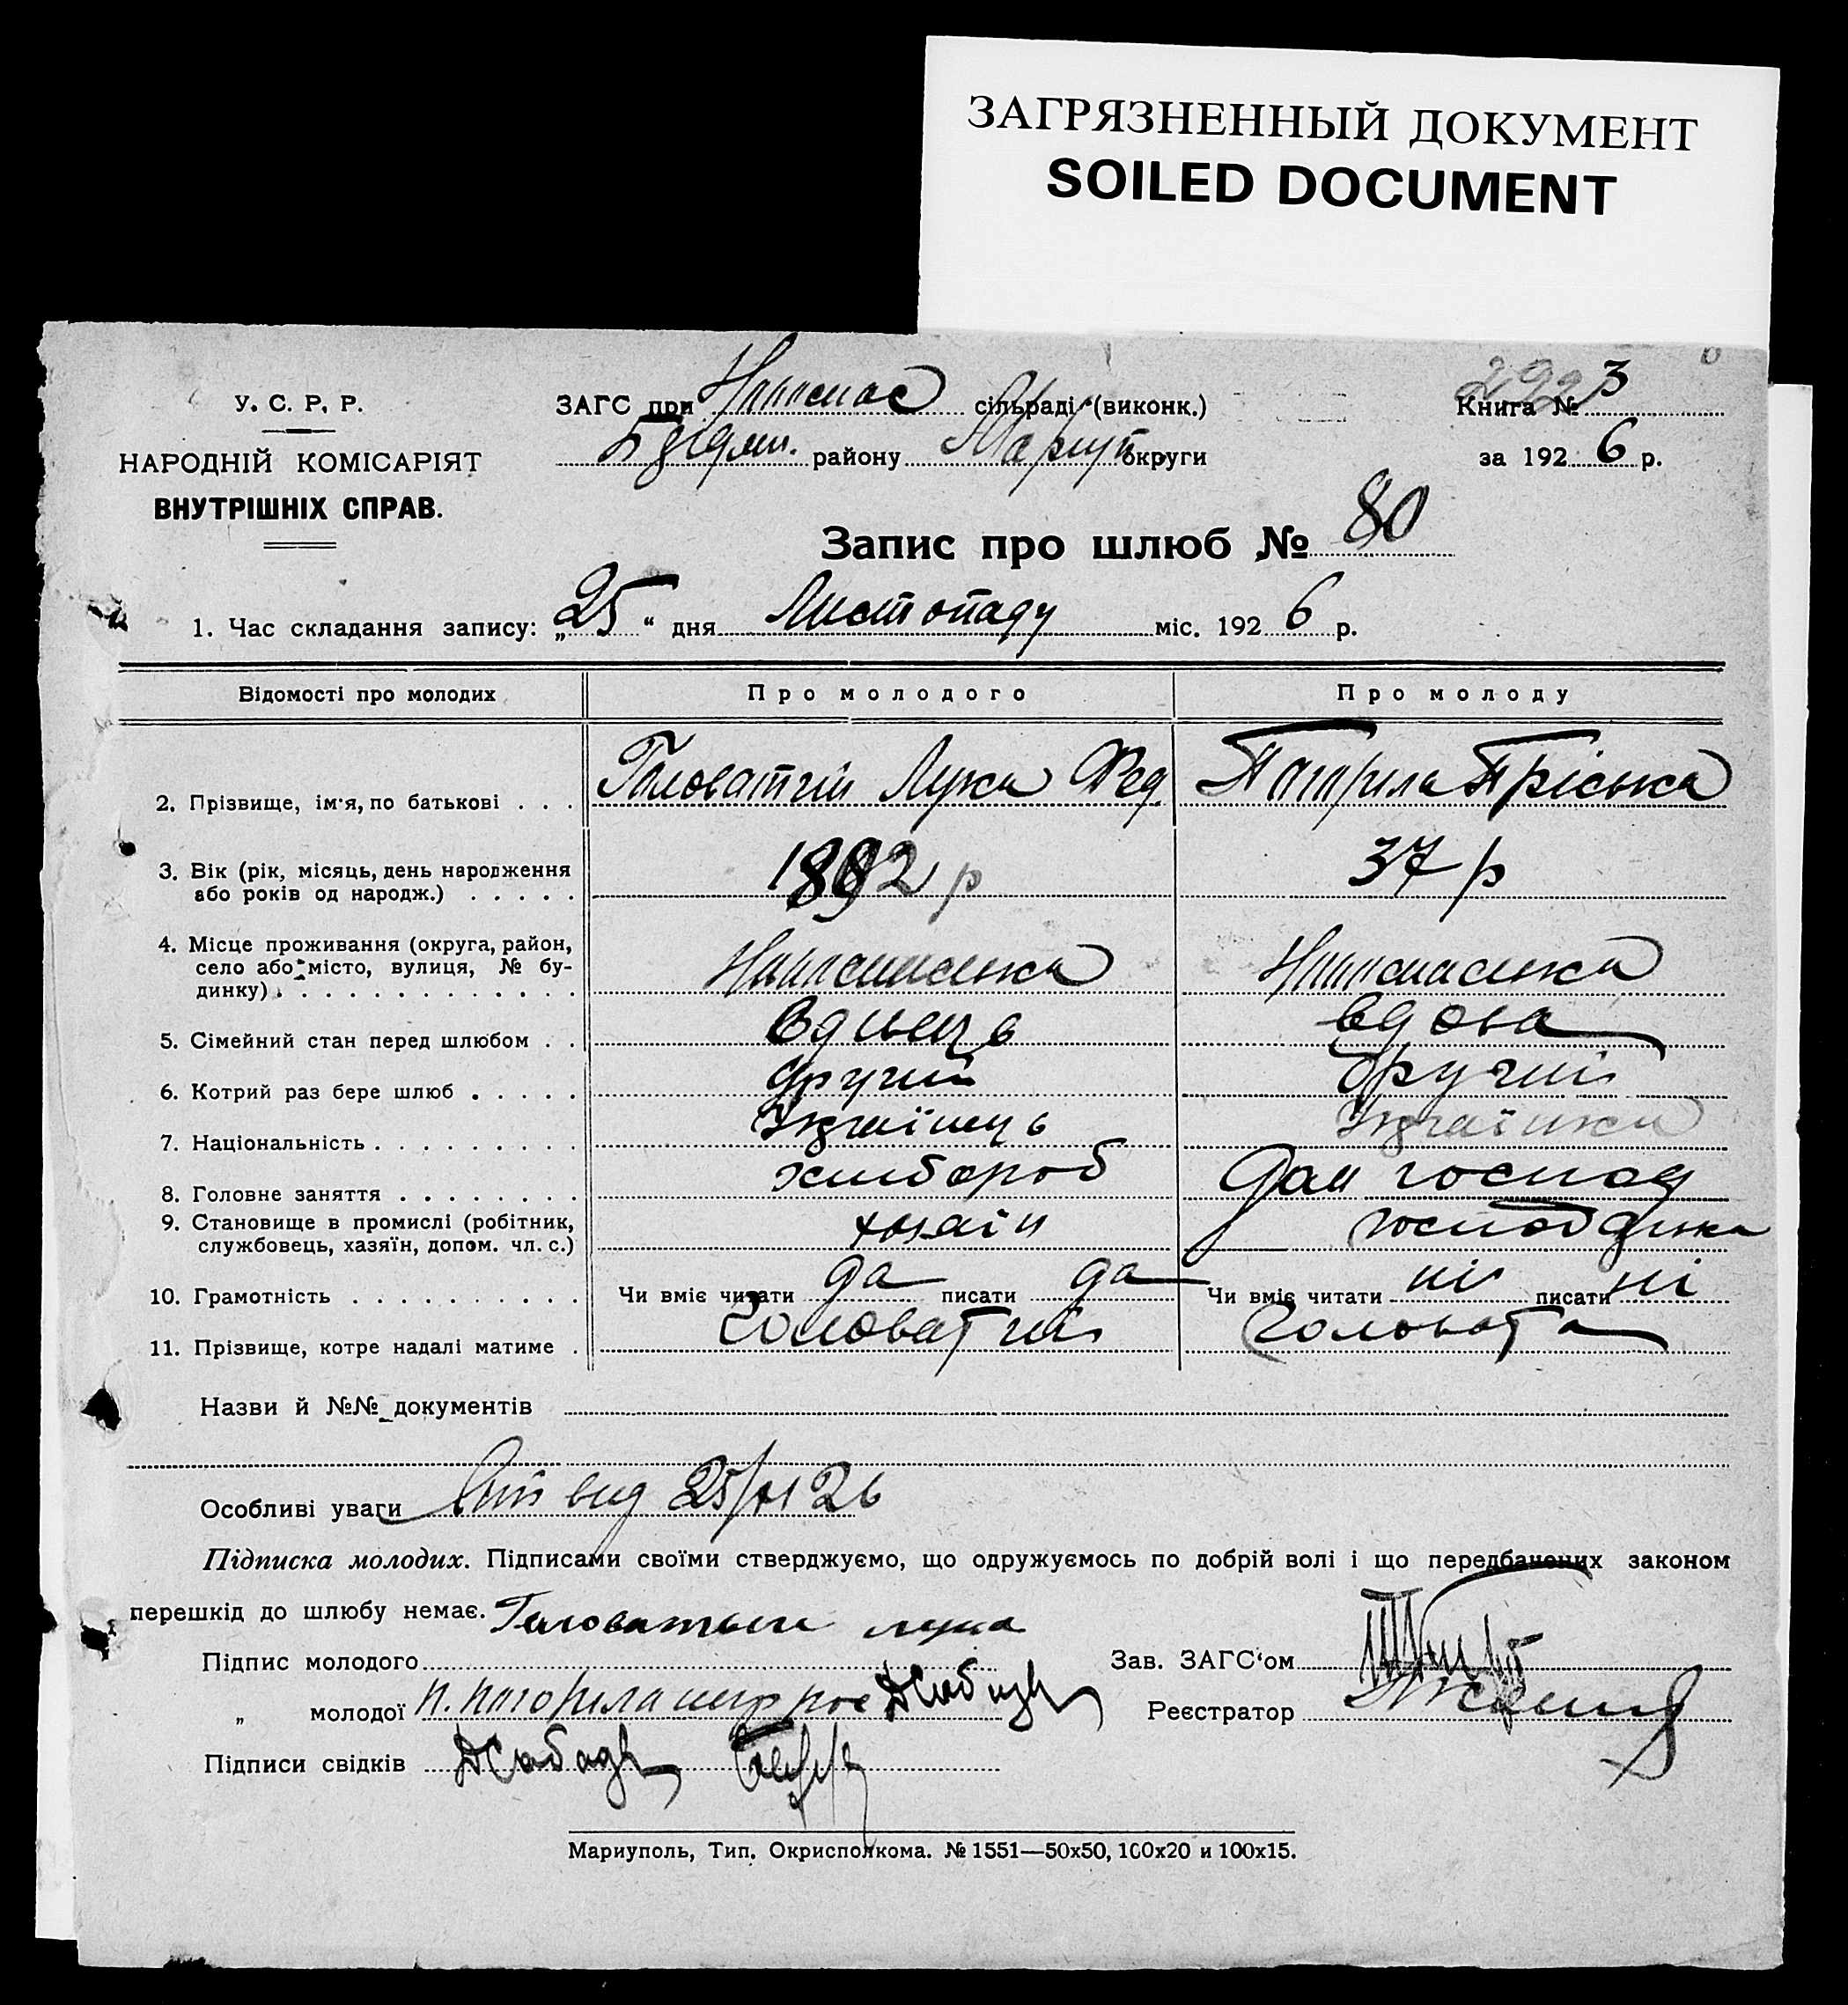 ЗАГРЯЗНЕННЫЙ ДОКУМЕНТ
SOILED DOCUMENT
У. С. Р. Р.
НАРОДНІЙ КОМІСАРІЯТ
ВНУТРІШНІХ СПРАВ.
ЗАГС при сільраді (виконк.)
району Маріуп округи
Книга № 3
за 1926 р.
Запис про шлюб № 80
1. Час складання запису: „25“ дня Листопаду міс. 1926 р.
Відомості про молодих Про молодого Про молоду
2. Прізвище, ім'я, по батькові . . . Головатий Лука Фед. Погоріла Пріська
3. Вік (рік, місяць, день народження
або років од народж.) . . . . . 37 р
4. Місце проживання (округа, район,
село або місто, вулиця, № бу-
динку) . . . . . . . . . . . . .
5. Сімейний стан перед шлюбом . . Вдивець вдова
6. Котрий раз бере шлюб . . . . . другий другий
7. Національність . . . . . . . . . Українець Українка
8. Головне заняття . . . . . . . . хлібороб дом господ
9. Становище в промислі (робітник,
службовець, хазяїн, допом. чл. с.) хазяїн
10. Грамотність . . . . . . . . . . Чи вміє читати да писати да Чи вміє читати ні писати ні
11. Прізвище, котре надалі матиме . Головатий Головата
Назви й №№ документів
Особливі уваги вид 25/XI 26
Підписка молодих. Підписами своїми стверджуємо, що одружуємось по добрій волі і що передбачених законом
перешкід до шлюбу немає.
Підпис молодого Головатый лука Зав. ЗАГС‘ом
„ молодої Погоріла Реєстратор
Підписи свідків
Мариуполь, Тип. Окрисполкома. № 1551—50x50, 100x20 и 100x15.